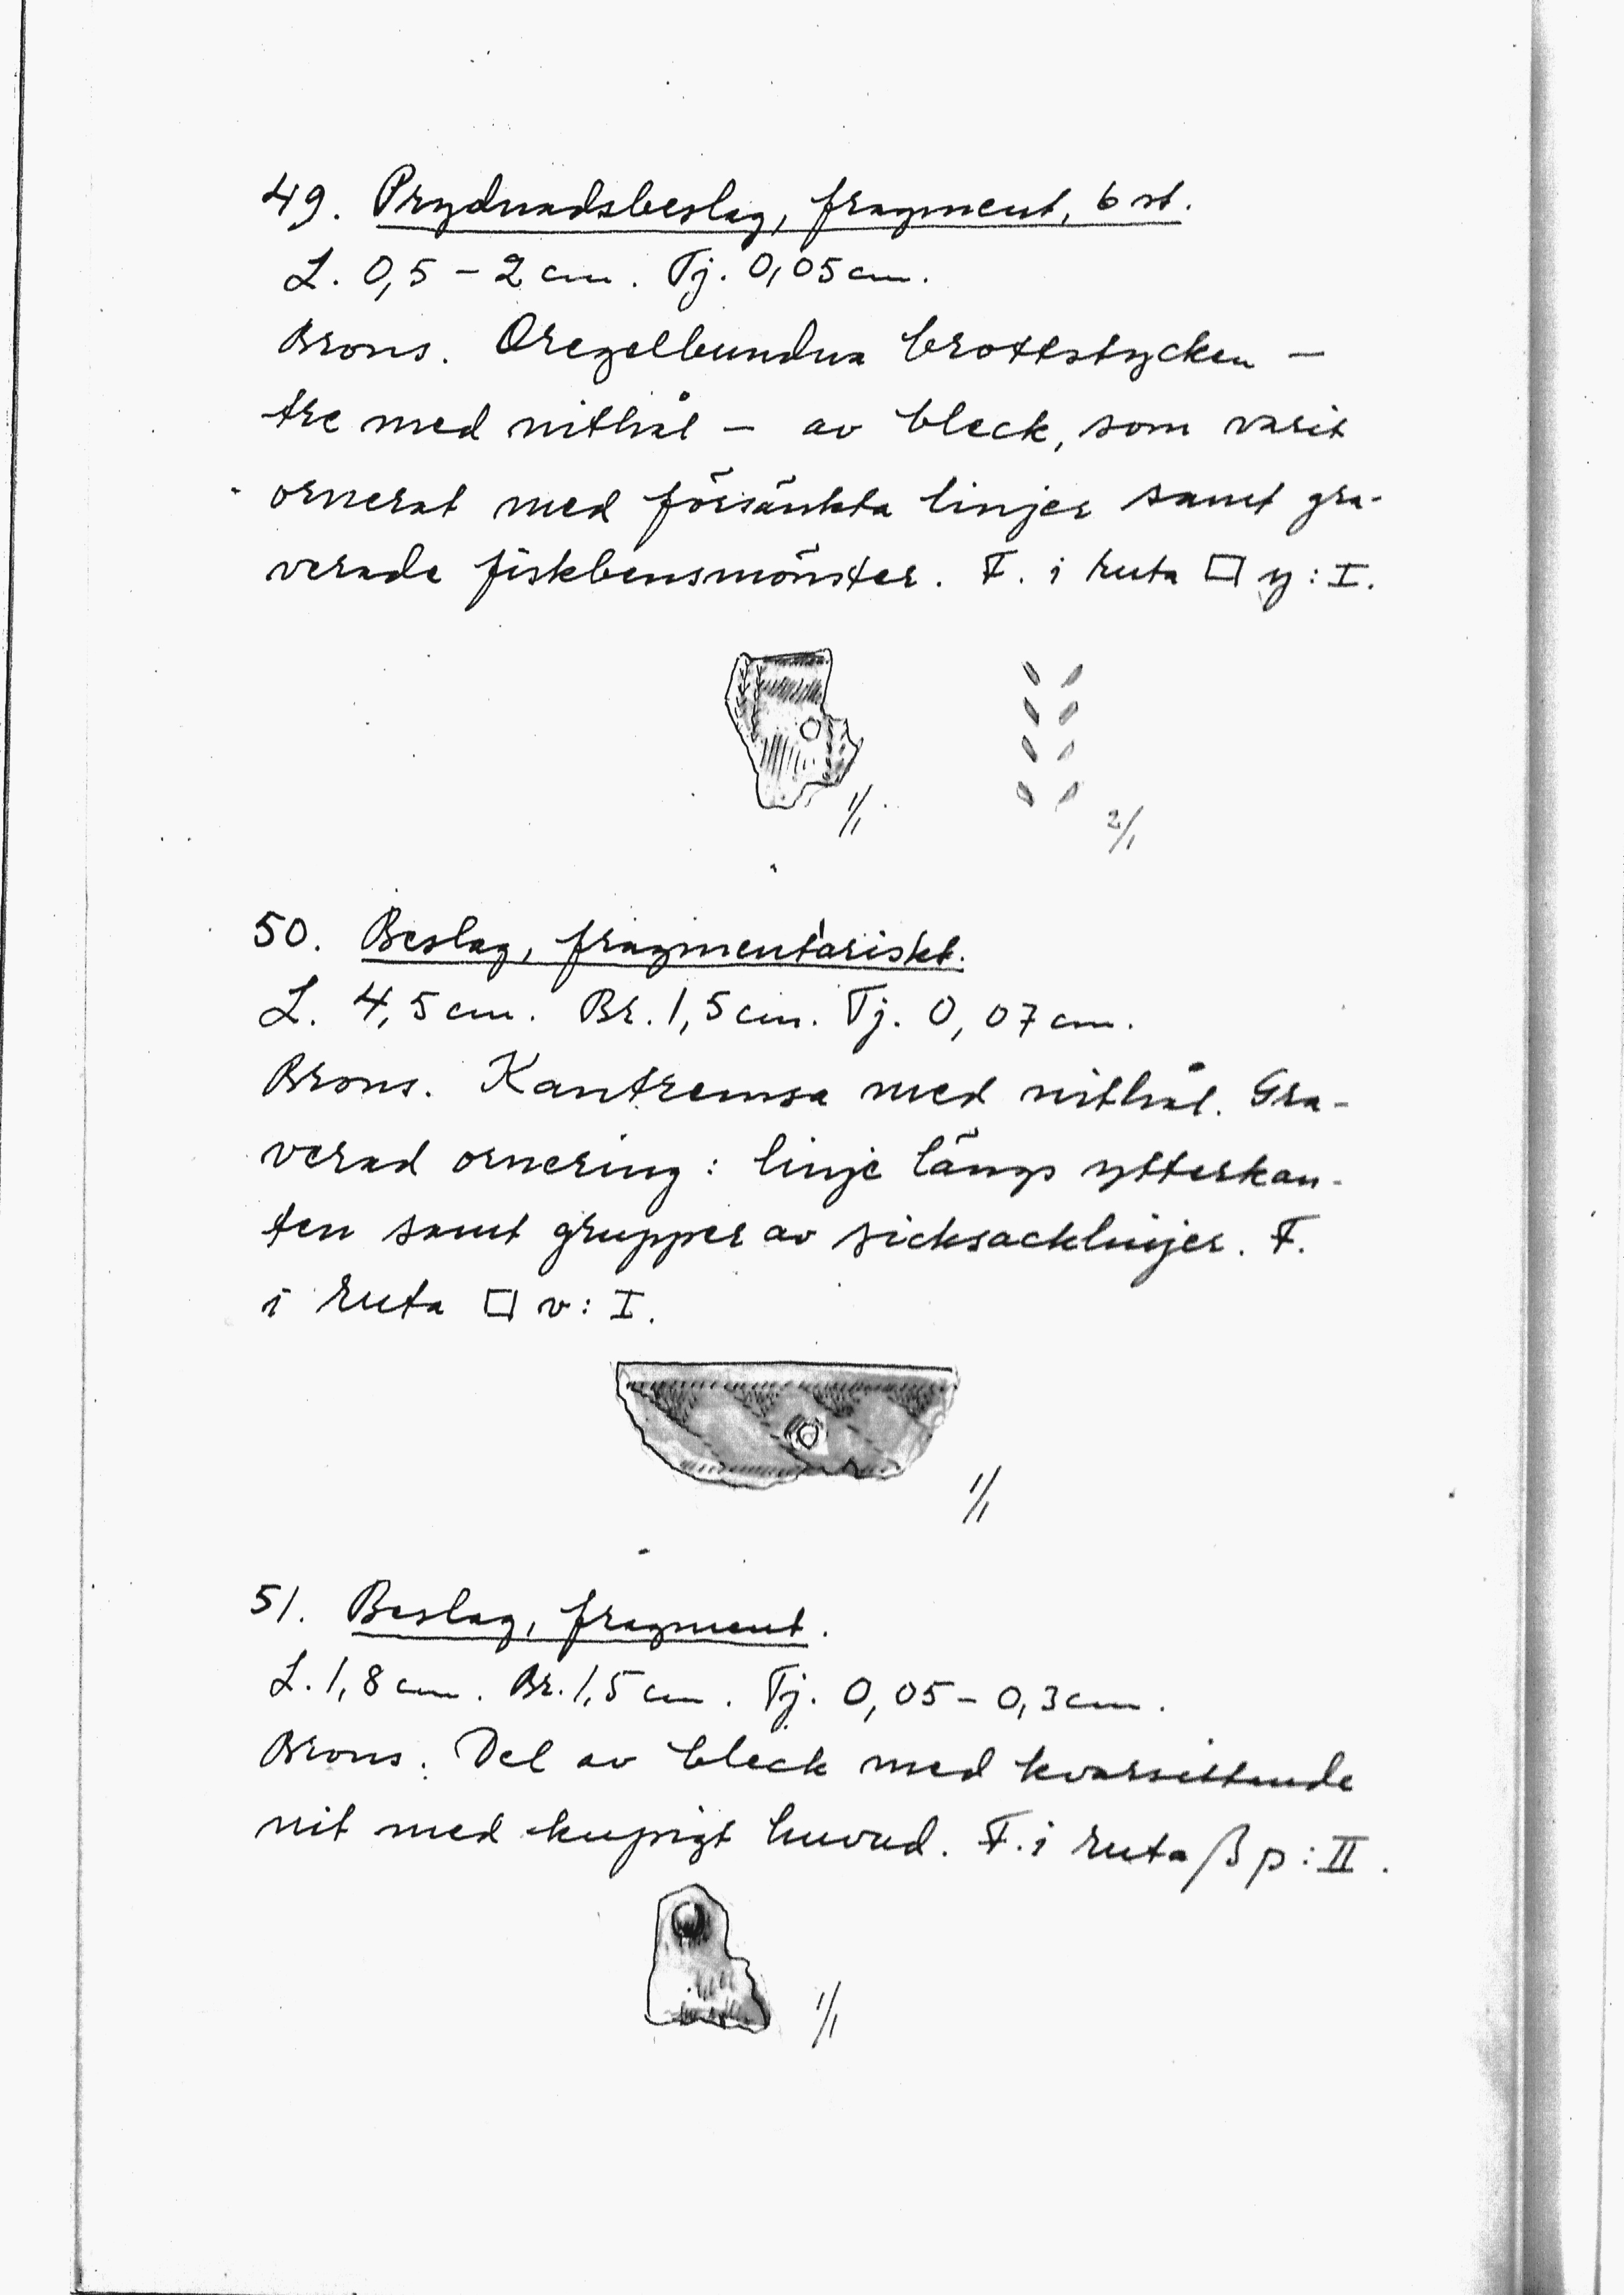 49. Prydnadsbeslag, fragment, 6 st.
L. 0,5 – 2 cm. Tj. 0,05 cm.
Brons. Oregelbundna brottstycken –
tre med nithål – av bleck, som varit
ornerat med försänkta linjer samt gra-
verade fiskbensmönster. F. i ruta □ y : I.
1/1
2/1
50. Beslag, fragmentariskt.
L. 4,5 cm. Br. 1,5 cm. Tj. 0,07 cm.
Brons. Kantremsa med nithål. Gra-
verad ornering : linje längs ytterkan-
ten samt grupper av sicksacklinjer. F.
i ruta □ v : I.
1/1
51. Beslag, fragment.
L. 1,8 cm. Br. 1,5 cm. Tj. 0,05 – 0,3 cm.
Brons. Del av bleck med kvarsittande
nit med kupigt huvud. F. i ruta β p : II.
1/1